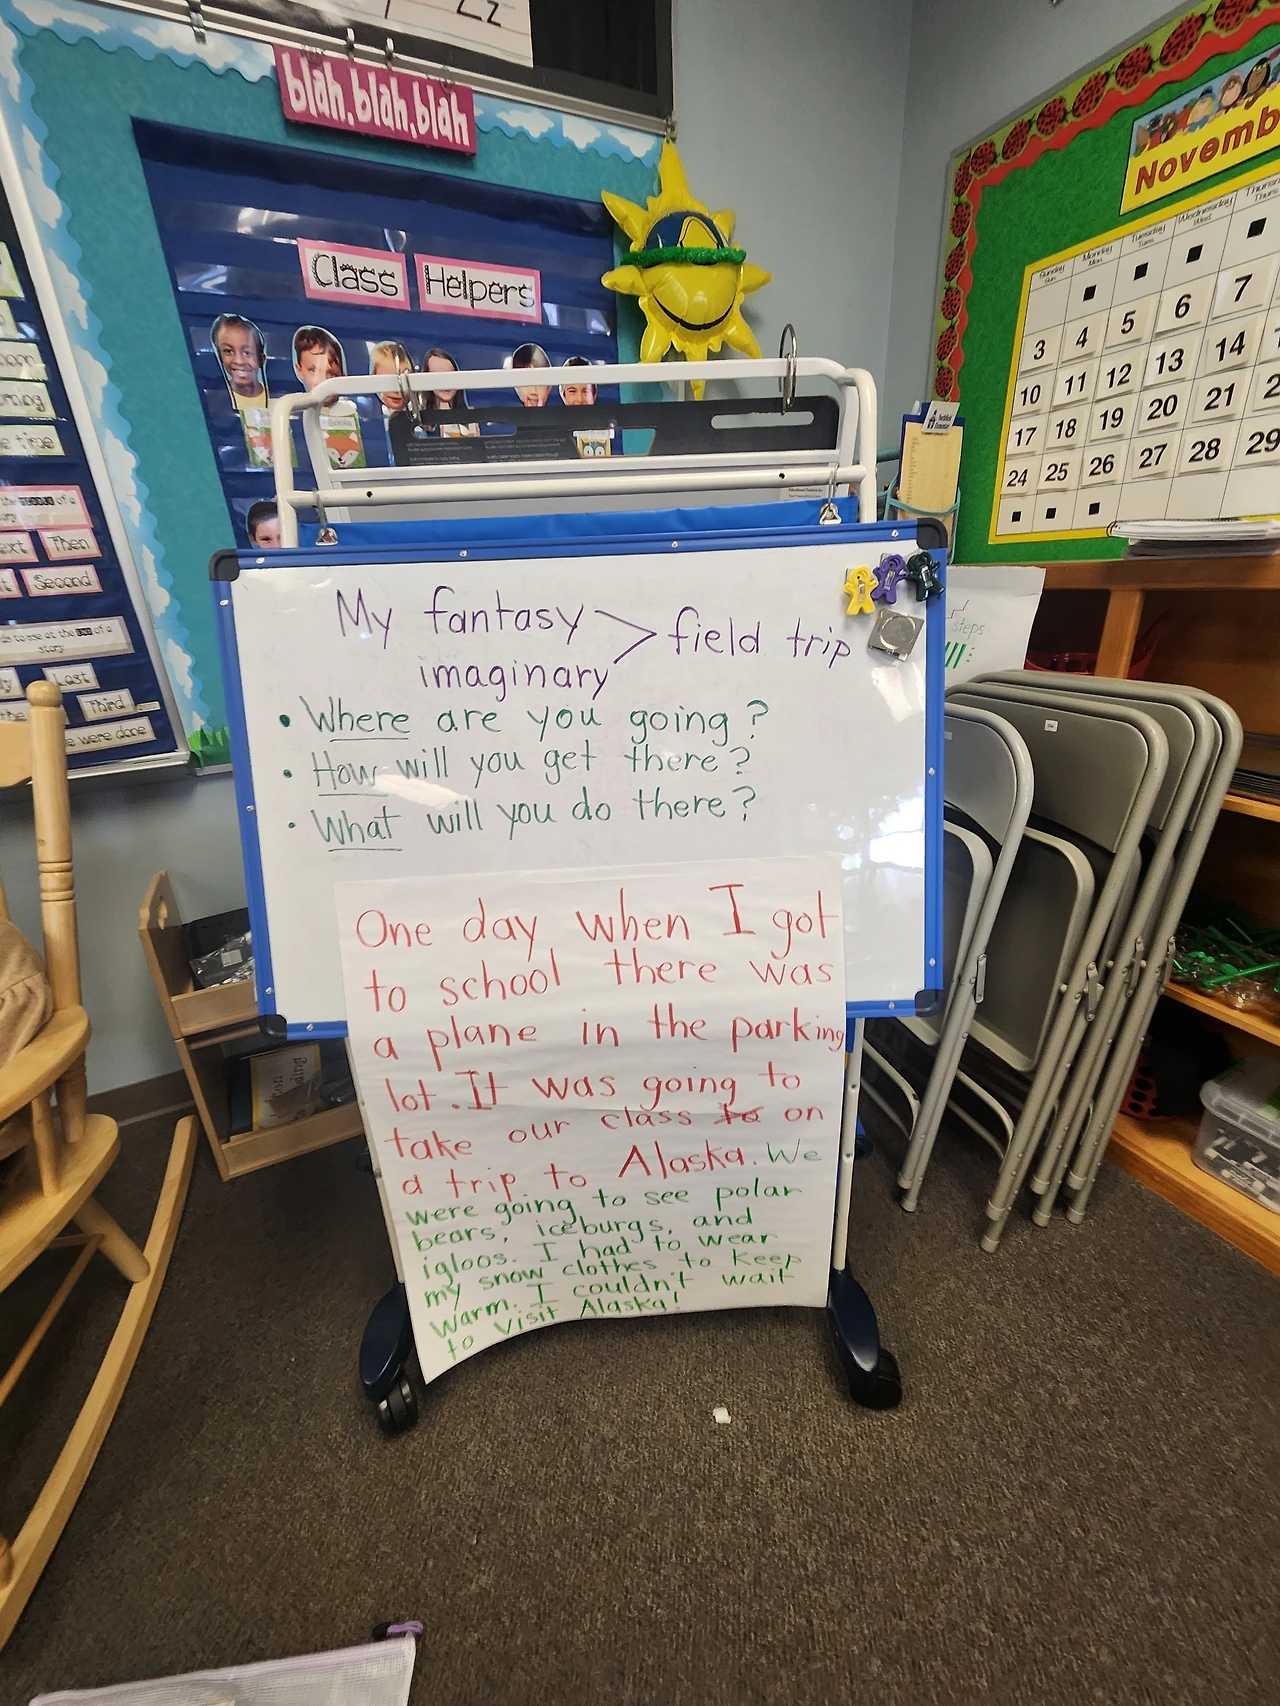 Zz
blah, blah, blah
Class Helpers
Novemb
Sunday Monday Tuesday Wednesday
Sun. Mon. Tues. Wed. Thurs.
3 4 5 6 7
10 11 12 13 14
17 18 19 20 21
24 25 26 27 28 29
Then
Second
story
Last
Third
were done
steps
My fantasy
imaginary
field trip
• Where are you going?
• How will you get there?
• What will you do there?
One day when I got
to school there was
a plane in the parking
lot. It was going to
take our class to on
a trip to Alaska. We
were going to see polar
bears, iceburgs, and
igloos. I had to wear
my snow clothes to keep
warm. I couldn't wait
to visit Alaska!